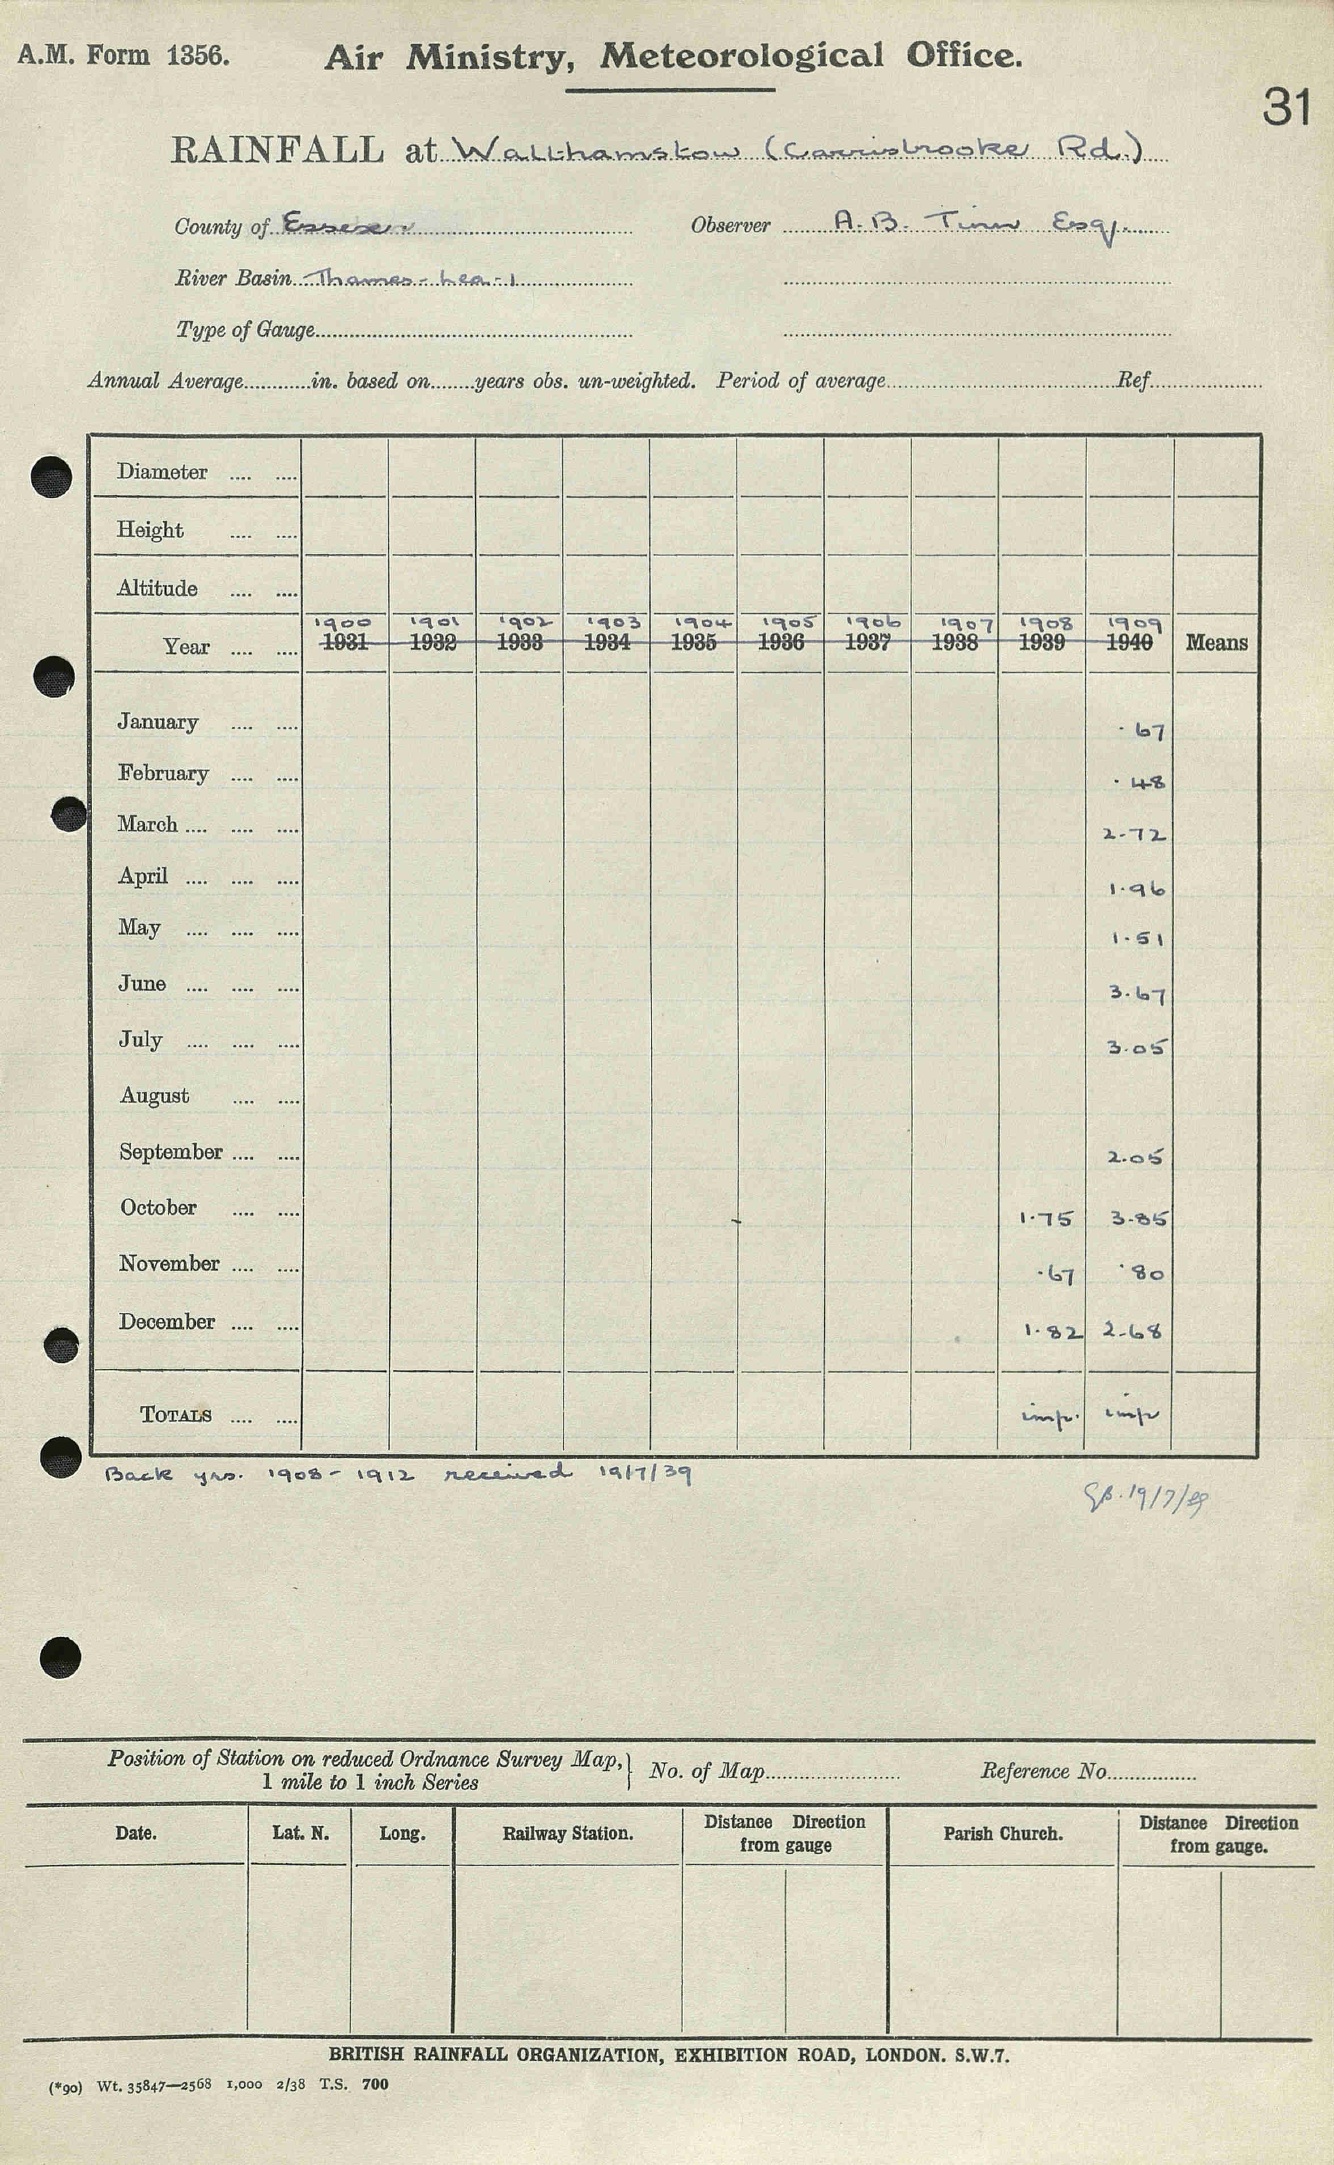 A.M. Form 1356. Air Ministry, Meteorological Office.
31
RAINFALL at Walthamstow (Carrisbrooke Rd.)
County of Essex Observer A.B. Tinn Esq.
River Basin Thames-Lea-1
Type of Gauge
Annual Average in. based on years obs. un-weighted. Period of average Ref.
Diameter
Height
Altitude
1900 1901 1902 1903 1904 1905 1906 1907 1908 1909
Year 1931 1932 1933 1934 1935 1936 1937 1938 1939 1940 Means
January .67
February .48
March 2.72
April 1.96
May 1.51
June 3.67
July 3.05
August
September 2.05
October 1.75 3.85
November .67 .80
December 1.82 2.68
TOTALS imp. imp
Back yrs. 1908-1912 received 19/7/39
19/7/39
Position of Station on reduced Ordnance Survey Map, No. of Map Reference No.
1 mile to 1 inch Series
Date. Lat. N. Long. Railway Station. Distance Direction from gauge Parish Church. Distance Direction from gauge.
BRITISH RAINFALL ORGANIZATION, EXHIBITION ROAD, LONDON. S.W.7.
(*90) Wt. 35847—2568 1,000 2/38 T.S. 700